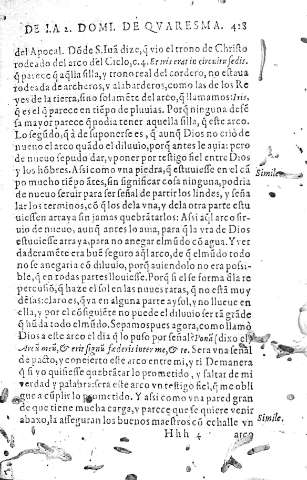 DE LA 2. DOMI. DE QVARESMA. 428
del Apocal. Dõde S. Iuã dize, q̃ vio el trono de Christo
rodeado del arco del Cielo, c. 4. Et iris erat in circuitu sedis.
q̃ parece q̃ aq̃lla silla, y trono real del cordero, no estaua
rodeada de archeros, y alabarderos, como las de los Re
yes de la tierra, sino solamẽte del arco, q̃ llamamos Iris,
q̃ es el q̃ parece en tiẽpo de pluuias. Porq̃ ninguna defẽ
sa mayor parece q̃ podia tener aquella silla, q̃ este arco.
Lo segũdo, q̃ à de suponerse es, q̃ aunq̃ Dios no criò de
nueuo el arco quãdo el diluuio, porq̃ antes le auia; pero
de nueuo sepudo dar, y poner por testigo fiel entre Dios
y los hõbres. Assi como vna piedra, q̃ estuuiesse en el cã
po mucho tiẽpo antes, sin significar cosa ninguna, podria
de nueuo seruir para ser señal de partir los lindes, y seña
lar los terminos, cõ q̃ los dela vna, y dela otra parte estu
uiessen arraya sin jamas quebrãtarlos: Assi aq̃l arco sir
uio de nueuo, aunq̃ antes lo auia, para q̃ la yra de Dios
estuuiesse arraya, para no anegar elmũdo cõ agua. Y ver
daderamẽte era buẽ seguro aq̃l arco, de q̃ elmũdo todo
no se anegaria cõ diluuio, porq̃ auiendolo no era possi-
ble, q̃ en todas partes llouiesse. Porq̃ si el se forma dela re
percusiõ, q̃ haze el sol en las nuues raras, q̃ no està muy
dẽsas: claro es, q̃ va en alguna parte ay sol, y no llueue en
ella, y por el cõsiguiẽte no puede el diluuio ser tã grãde
q̃ hũda todo elmũdo. Sepamos pues agora, como llamò
Dios a este arco el dia q̃ lo puso por señal? Ponã (dixo el)
Arcũ meũ, & erit signũ fœderis inter me, & te. Sera vna señal
de pacto, y concierto este arco entre mi, y ti. De manera
q̃ si yo quisiesse quebrãtar lo prometido, y faltar de mi
verdad y palabra: sera este arco vn testigo fiel, q̃ me obli
gue a cũplir lo prometido. Y assi como vna pared gran
de que tiene mucha carga, y parece que se quiere venir
abaxo, la asseguran los buenos maestros cõ echalle vn
Hhh 4 arco
Simile.
Simile.